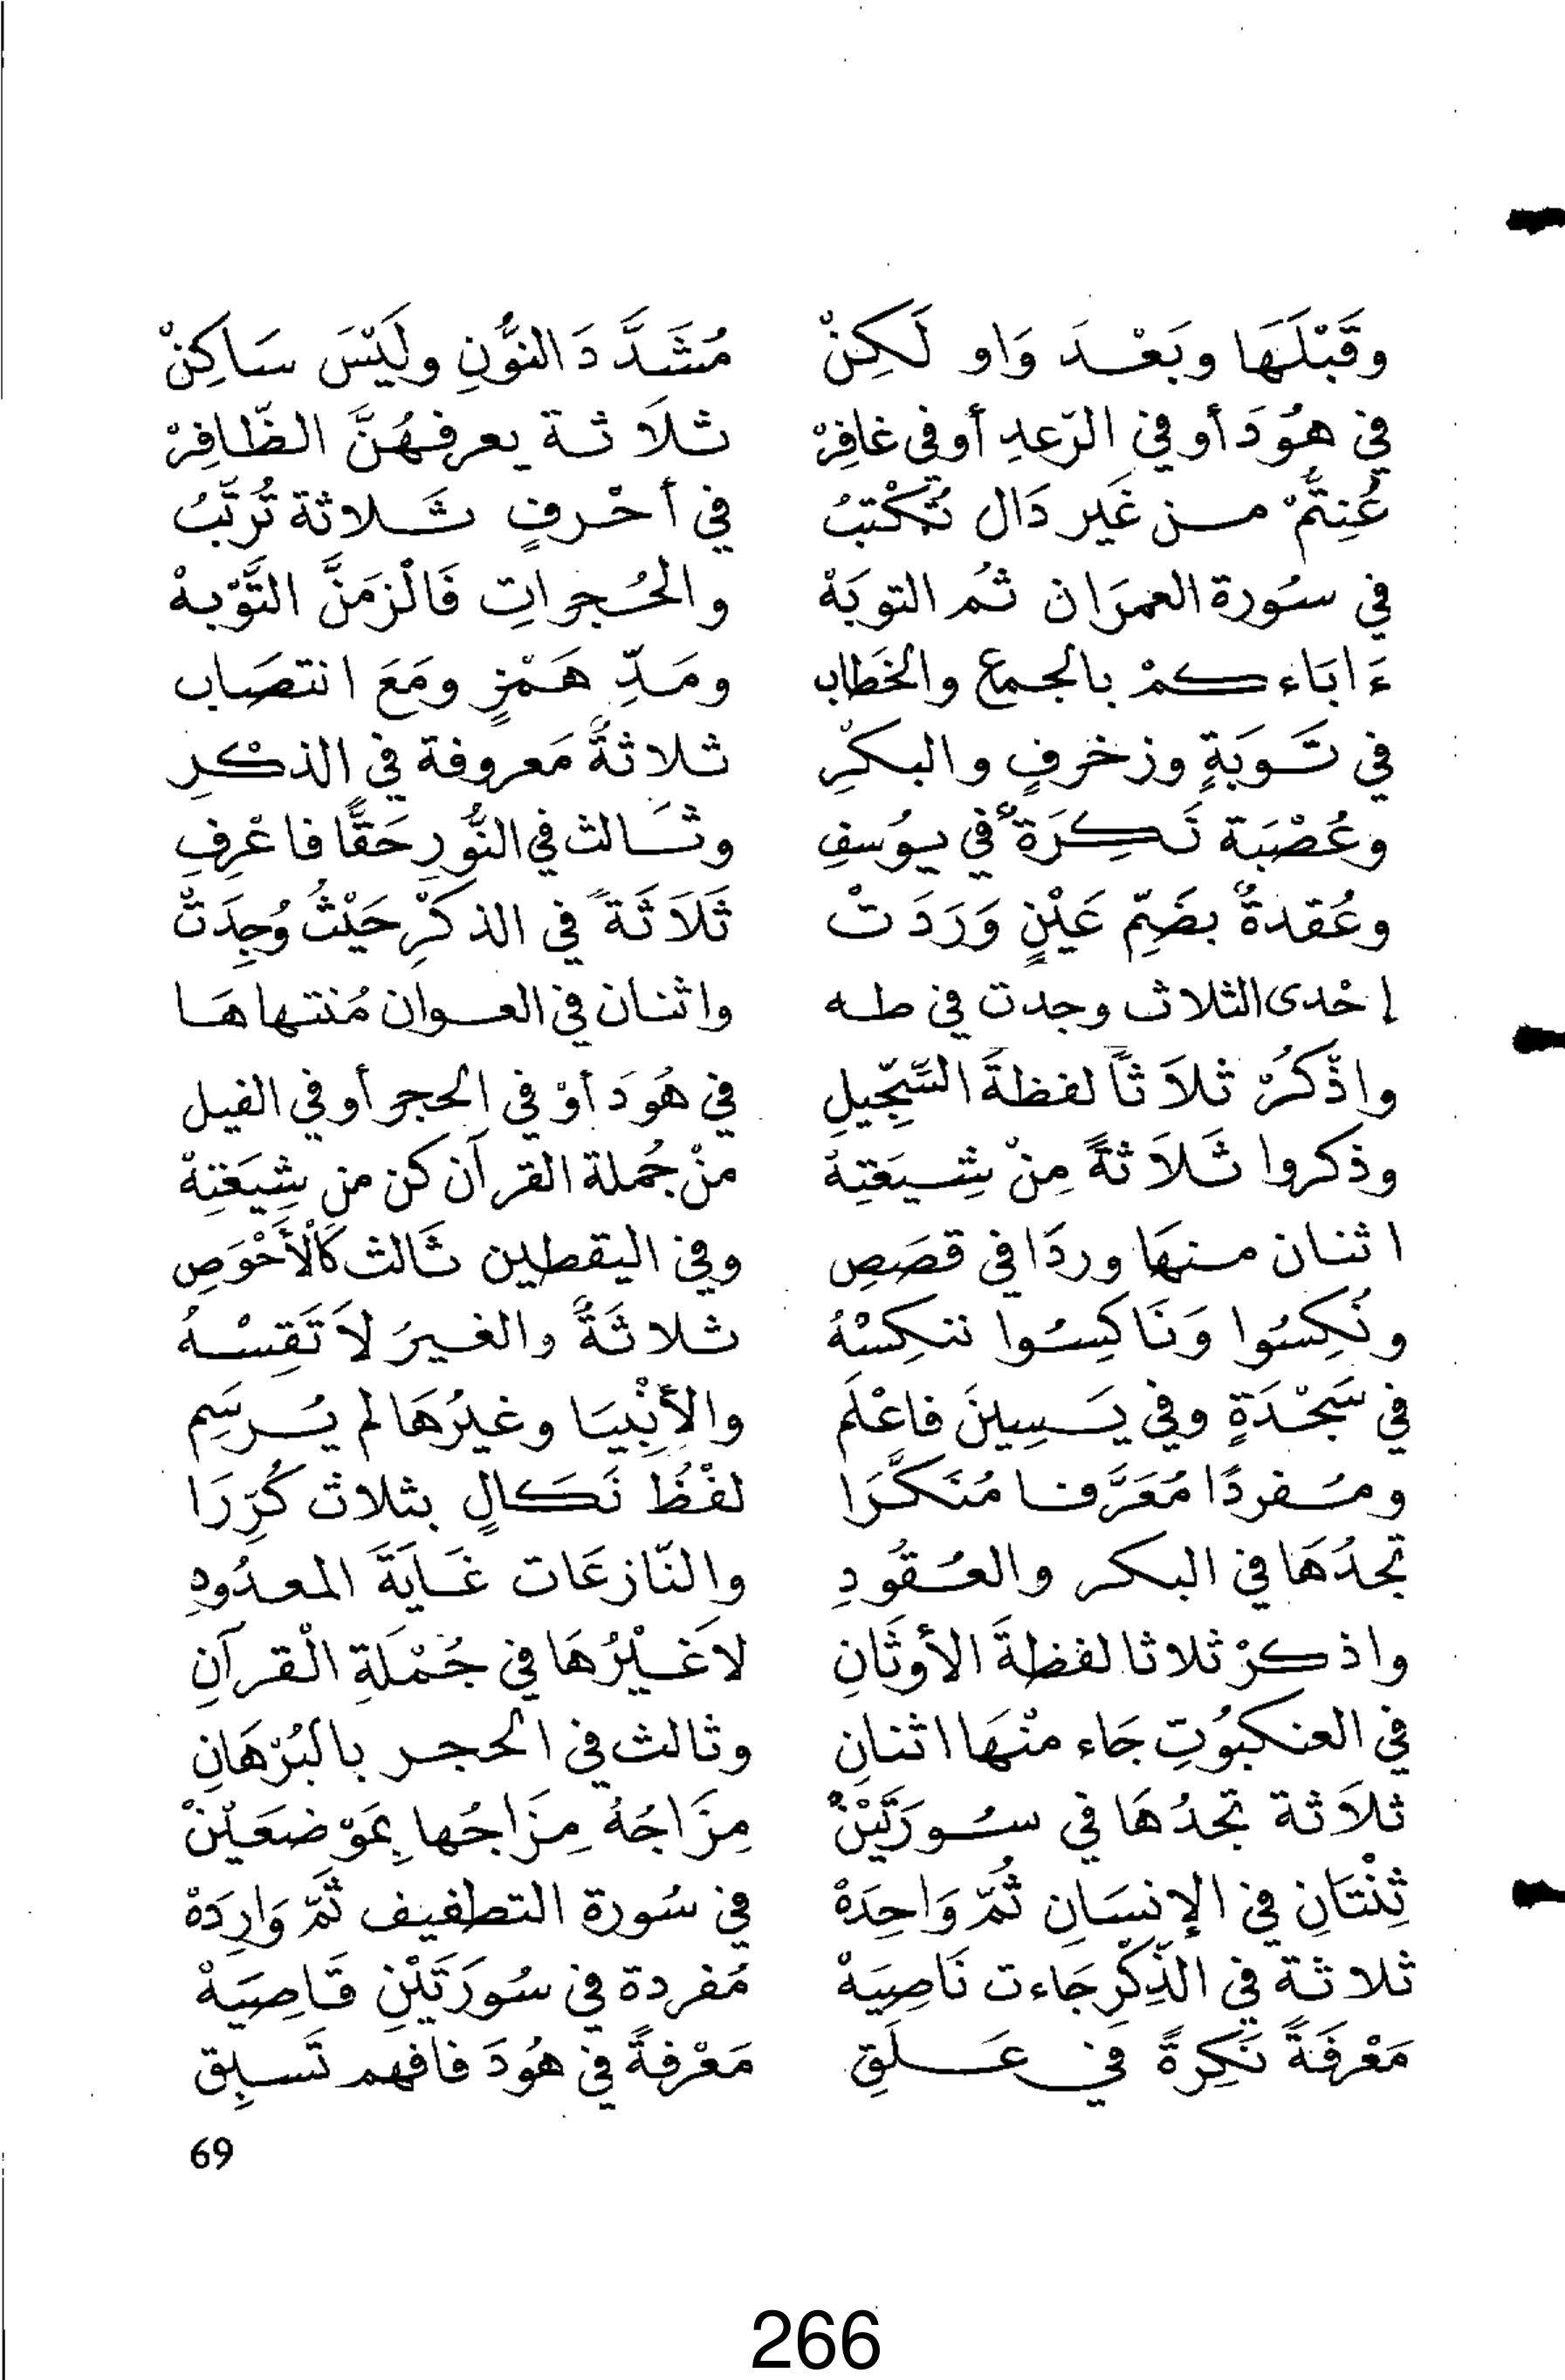 وقَبْلَهَا وبَعْدَ وَاو لَكِنْ مُشَدَّدَ النُّونِ ولَيْسَ سَاكِنْ
في هُودَ أو في الرّعدِ أو في غافِرْ ثلاثة يعرفهُنَّ الظّافِرْ
عُنِتُّمْ من غَير دَال تُكْتبُ في أحْرفٍ ثَلاثة تُرتّبُ
في سُورة العمرَان ثُم التوبَهْ والحُجراتِ فَالْزمَنَّ التَّوْبهْ
ءَابَاءكمْ بالجمع والخَطاب ومَدِّ هَمْزٍ ومَعَ انتصَاب
في تَوبَةٍ وزخرفٍ والبكْرِ ثلاثةٌ مَعروفة في الذكْرِ
وعُصْبَة نَكِرَةٌ في يوُسفِ وثَالث في النُّورِ حَقًّا فاعْرِفِ
وعُقدةٌ بضَمِّ عَيْنٍ وَرَدَتْ ثَلَاثَةً في الذكْرِ حَيْثُ وُجِدَتْ
إحْدى الثلاث وجدت في طه واثنان في العوان مُنتهاهَا
واذْكُرْ ثلاَثاً لفظةَ السِّجِّيلِ في هُودَ أوْ في الحجر أو في الفيل
وذكروا ثَلاَثةً مِنْ شِيعَتِهْ منْ جُملة القرآن كن من شِيَعَتِهْ
اثنان منهَا وردَا في قصَصِ وفي اليقطين ثَالث كَالْأَحْوَصِ
ونُكِسُوا وَنَاكِسُوا ننكِسْهُ ثلاثَةٌ والغيرُ لاَ تَقِسْهُ
في سَجْدَةٍ وفي يَسِينَ فاعْلَم والأَنْبِيَا وغيرُهَا لم يُرسَمِ
ومُفردًا مُعَرَّفا مُنَكَّرَا لفْظُ نَكالٍ بثلاث كُرِّرَا
تجدُهَا في البكر والعُقُودِ والنّازعَات غَايَةَ المعدُودِ
واذكرْ ثلاثا لفظةَ الأوثَانِ لاَ غيْرُهَا في جُمْلَةِ الْقرآنِ
في العنكبُوتِ جَاء منْهَا اثنانِ وثالث في الحجر بالبُرْهَانِ
ثلاَثة تجدُهَا في سُورَتَيْنْ مِزَاجَهُ مِزَاجُها بِمَوْضعَيْنْ
ثِنْتَانِ في الإنسَانِ ثُمّ وَاحِدَهْ في سُورة التطفيف ثَمّ وَارِدَهْ
ثلاثة في الذِّكْرِ جَاءت نَاصِيَهْ مُفردة في سُورَتَيْنِ قَاصِيَهْ
مَعْرفَةً نَكِرةً في عَلَقِ مَعْرفةً في هُودَ فافهم تَسبِق
69
266